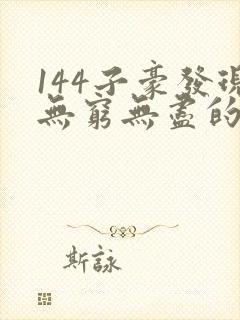 144子豪發現
無窮無盡的
斯詠